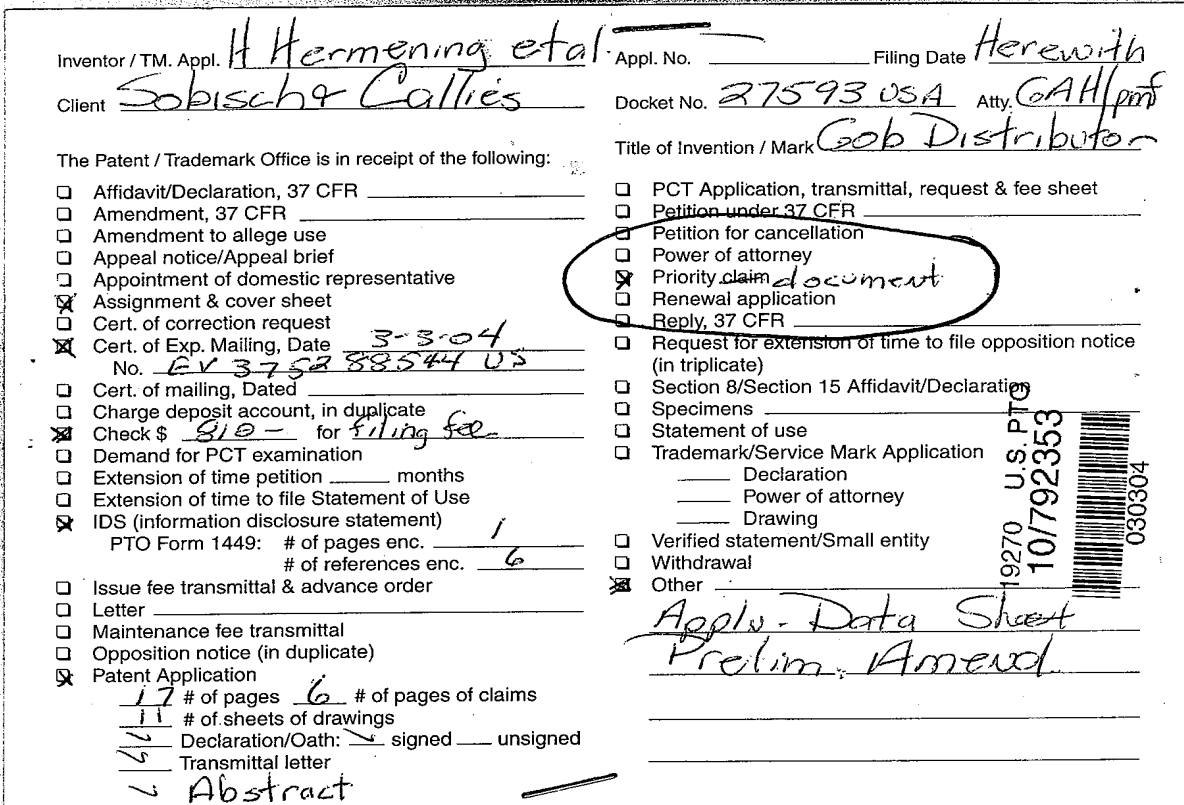 Inventor / TM. Appl. H Hermening et al.
Client Sobisch & Callies
The Patent / Trademark Office is in receipt of the following:
Affidavit/Declaration, 37 CFR
Amendment, 37 CFR
Amendment to allege use
Appeal notice/Appeal brief
Appointment of domestic representative
Assignment & cover sheet
Cert. of correction request
Cert. of Exp. Mailing, Date 3-3-04
No. EV 375288544 US
Cert. of mailing, Dated
Charge deposit account, in duplicate
Check $ 810- for filing fee
Demand for PCT examination
Extension of time petition months
Extension of time to file Statement of Use
IDS (information disclosure statement)
PTO Form 1449: # of pages enc. 1
# of references enc. 6
Issue fee transmittal & advance order
Letter
Maintenance fee transmittal
Opposition notice (in duplicate)
Patent Application
17 # of pages 6 # of pages of claims
11 # of sheets of drawings
Declaration/Oath: signed unsigned
Transmittal letter
Abstract
Appl. No. Filing Date Herewith
Docket No. 27593 USA Atty. GAH/pmf
Title of Invention / Mark Gob Distributor
PCT Application, transmittal, request & fee sheet
Petition under 37 CFR
Petition for cancellation
Power of attorney
Priority claim document
Renewal application
Reply, 37 CFR
Request for extension of time to file opposition notice
(in triplicate)
Section 8/Section 15 Affidavit/Declaration
Specimens
Statement of use
Trademark/Service Mark Application
Declaration
Power of attorney
Drawing
Verified statement/Small entity
Withdrawal
Other
Appln. Data Sheet
Prelim. Amend
19270 U.S. PTO
10/792353
030304